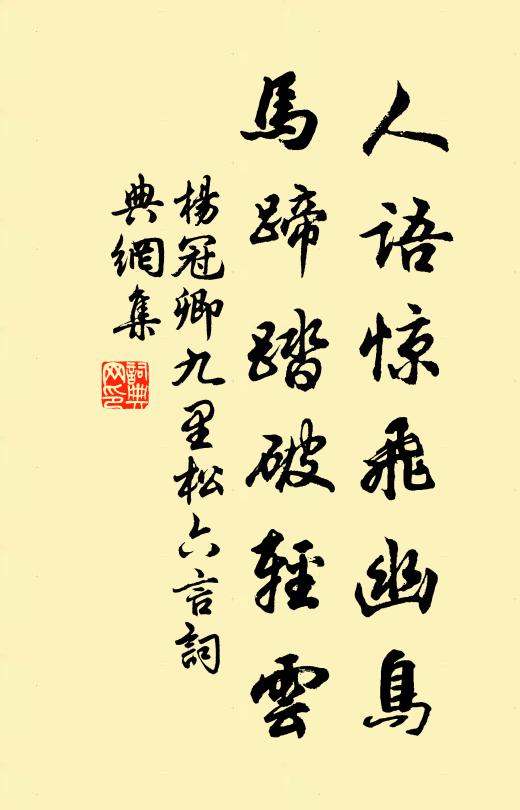 人語惊飛幽鳥
馬蹄踏破輕雲
楊冠卿九里松六言詞
典網集
詞典
网印